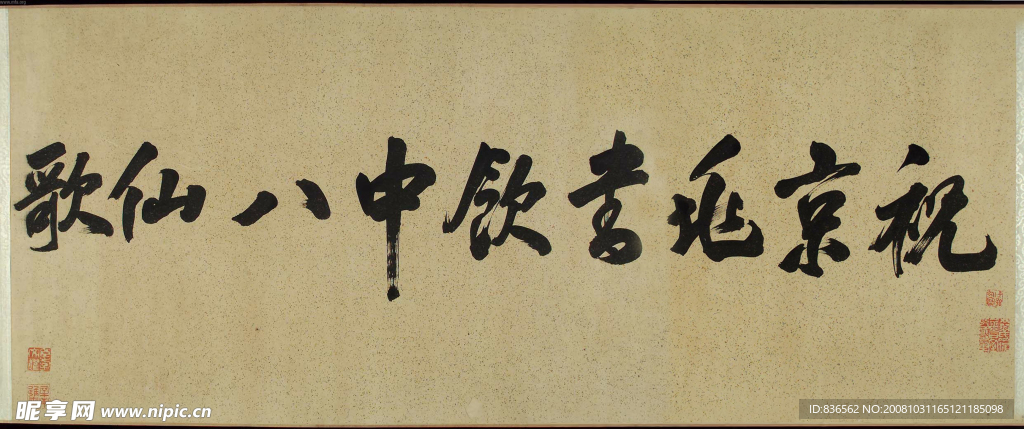 祝京兆書飲中八仙歌
昵享网 www.nipic.cn
ID:836562 NO:20081031165121185098